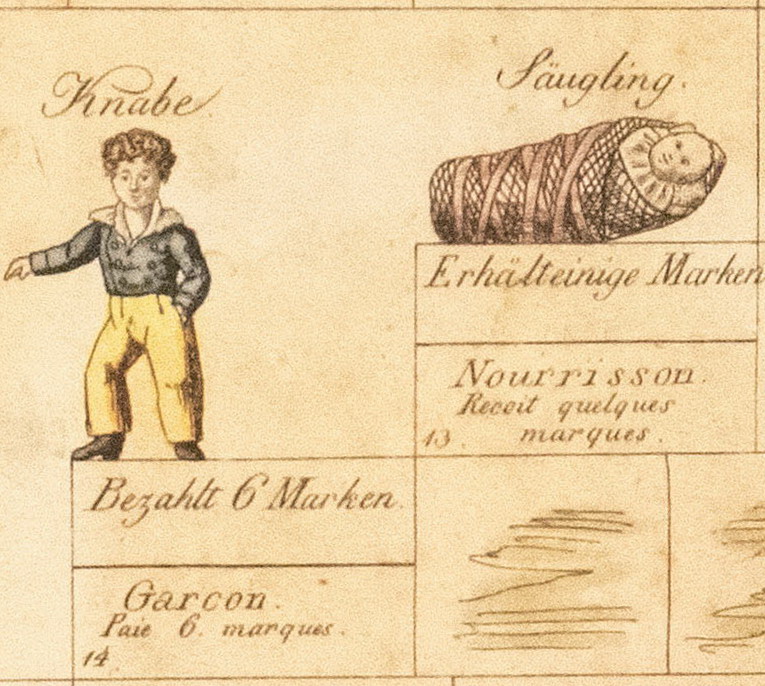 Knabe.
Säugling.
Erhält einige Marken
Nourrisson.
Recoit quelques
13. marques.
Bezahlt 6 Marken.
Garcon.
Paie 6. marques.
14.